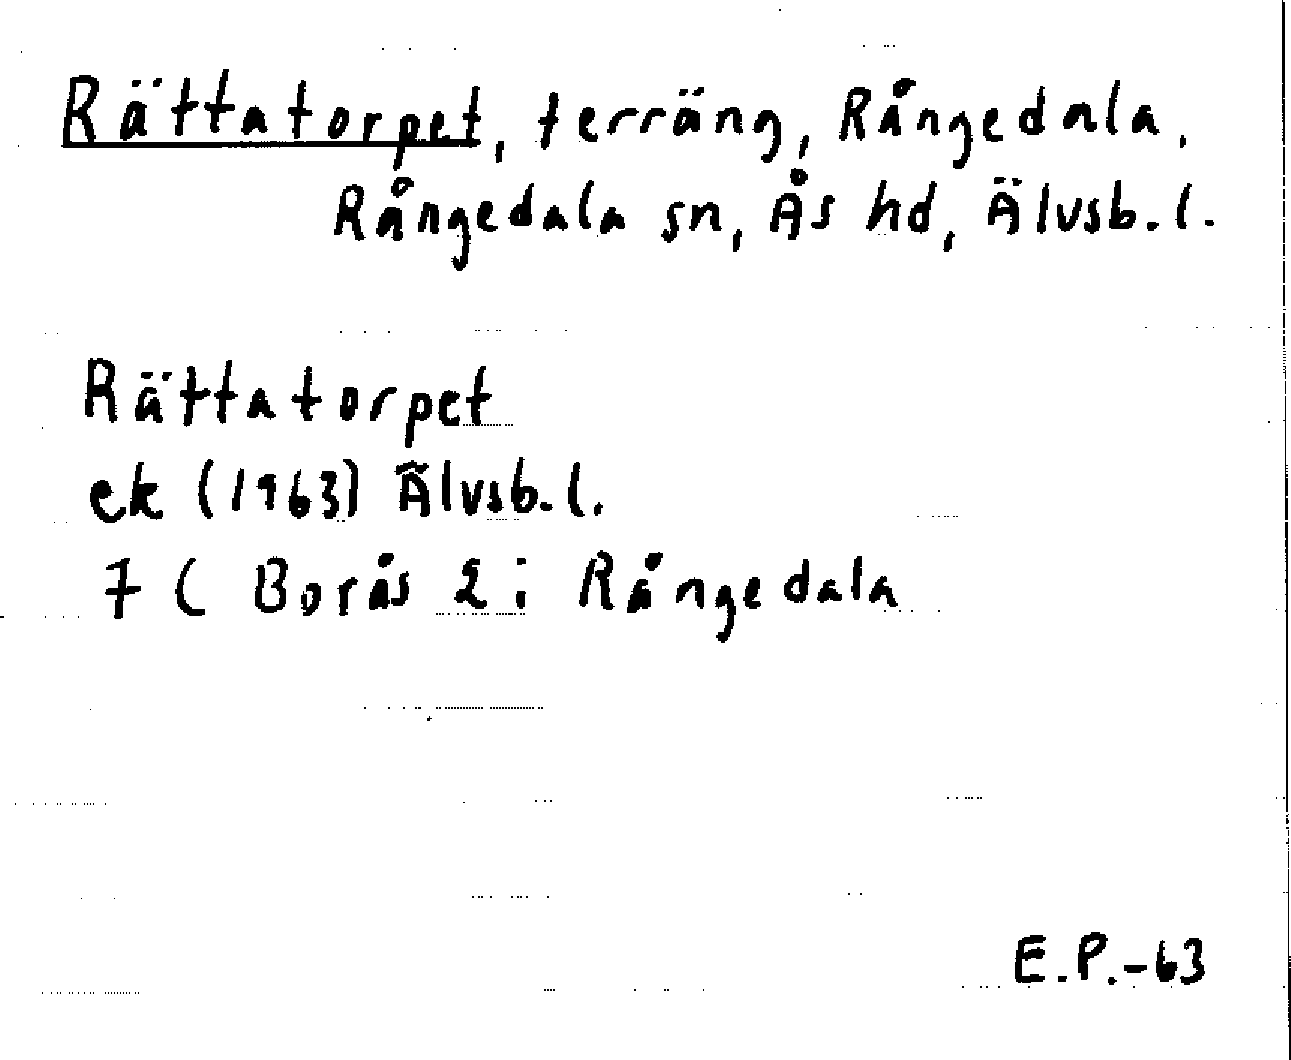 Rättatorpet, terräng, Rångedala,
Rångedala sn, Ås hd, Älvsb. l.
Rättatorpet
ek (1963) Älvsb. l.
7 C Borås 2 i Rångedala
E.P.-63